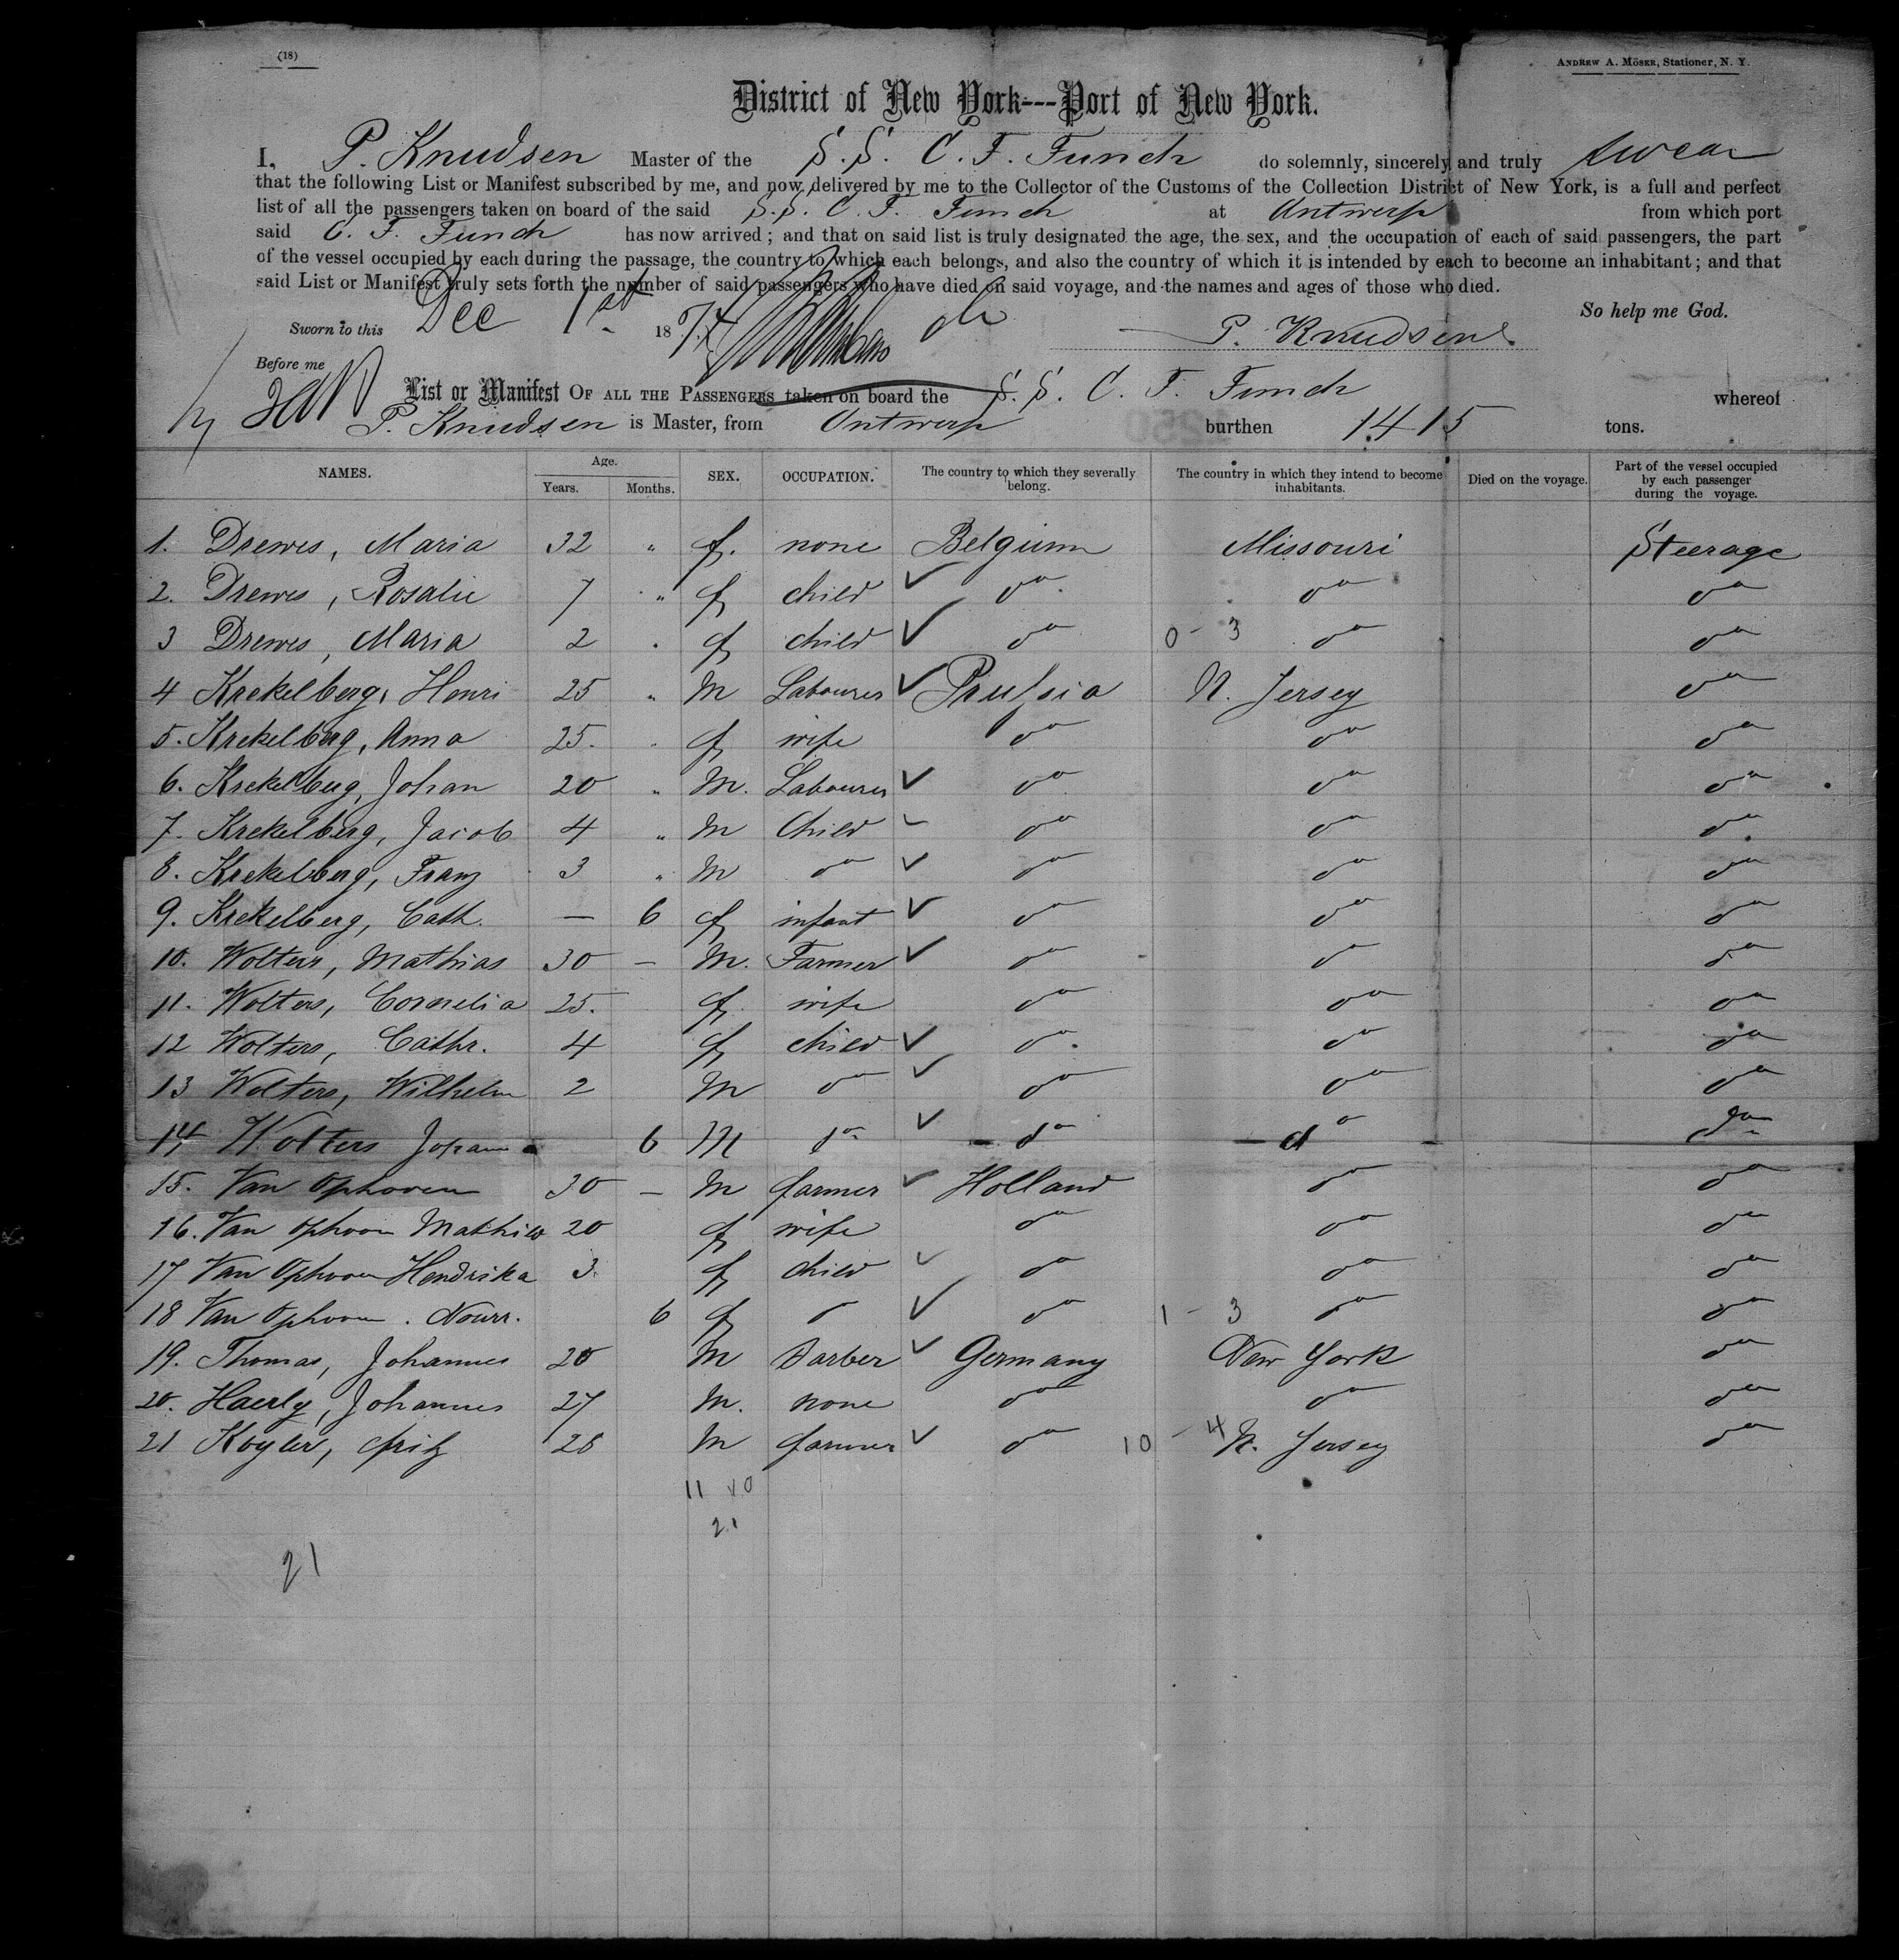 (18)
ANDREW A. MÖSER, Stationer, N. Y.
District of New York---Port of New York.
I, P. Knudsen Master of the S.S. C. F. Funch do solemnly, sincerely and truly swear
that the following List or Manifest subscribed by me, and now delivered by me to the Collector of the Customs of the Collection District of New York, is a full and perfect
list of all the passengers taken on board of the said S.S. C. F. Funch at Antwerp from which port
said C. F. Funch has now arrived; and that on said list is truly designated the age, the sex, and the occupation of each of said passengers, the part
of the vessel occupied by each during the passage, the country to which each belongs, and also the country of which it is intended by each to become an inhabitant; and that
said List or Manifest truly sets forth the number of said passengers who have died on said voyage, and the names and ages of those who died.
So help me God.
Sworn to this Dec 1st 1874 P. Knudsen
Before me
List or Manifest OF ALL THE PASSENGERS taken on board the S.S. C. F. Funch whereof
P. Knudsen is Master, from Antwerp burthen 1415 tons.
NAMES. Age. Years. Months. SEX. OCCUPATION. The country to which they severally belong. The country in which they intend to become inhabitants. Died on the voyage. Part of the vessel occupied by each passenger during the voyage.
1. Drewes, Maria 32 " f. none Belgium Missouri Steerage
2. Drewes, Rosalie 7 " f child do do do
3 Drewes, Maria 2 . f child do 0 - 3 do do
4 Krekelberg, Henri 25 " M Labourer Prussia N. Jersey do
5. Krekelberg, Anna 25. " f wife do do do
6. Krekelberg, Johan 20 " M. Labourer do do do
7. Krekelberg, Jacob 4 " M Child do do do
8. Krekelberg, Franz 3 " M do do do do
9. Krekelberg, Cath. — 6 f infant do do do
10. Wolters, Mathias 30 — M. Farmer do do do
11. Wolters, Cornelia 25. f wife do do do
12 Wolters, Cathr. 4 f child do do do
13 Wolters, Wilhelm 2 M do do do do
14 Wolters Johann 6 M do do do do
15. Van Ophoven 30 — M farmer Holland do do
16. Van Ophoven 20 f wife do do do
17 Van Ophoven Hendrika 3. f child do do do
18 Van Ophoven . Nourr. 6 f do do 1 - 3 do do
19. Thomas, Johannes 20 M Barber Germany New York do
20. Haerly, Johannes 27 M. none do do do
21 Kogler, Fritz 28 M farmer do 10 - 4 N. Jersey do
11 10
21
21